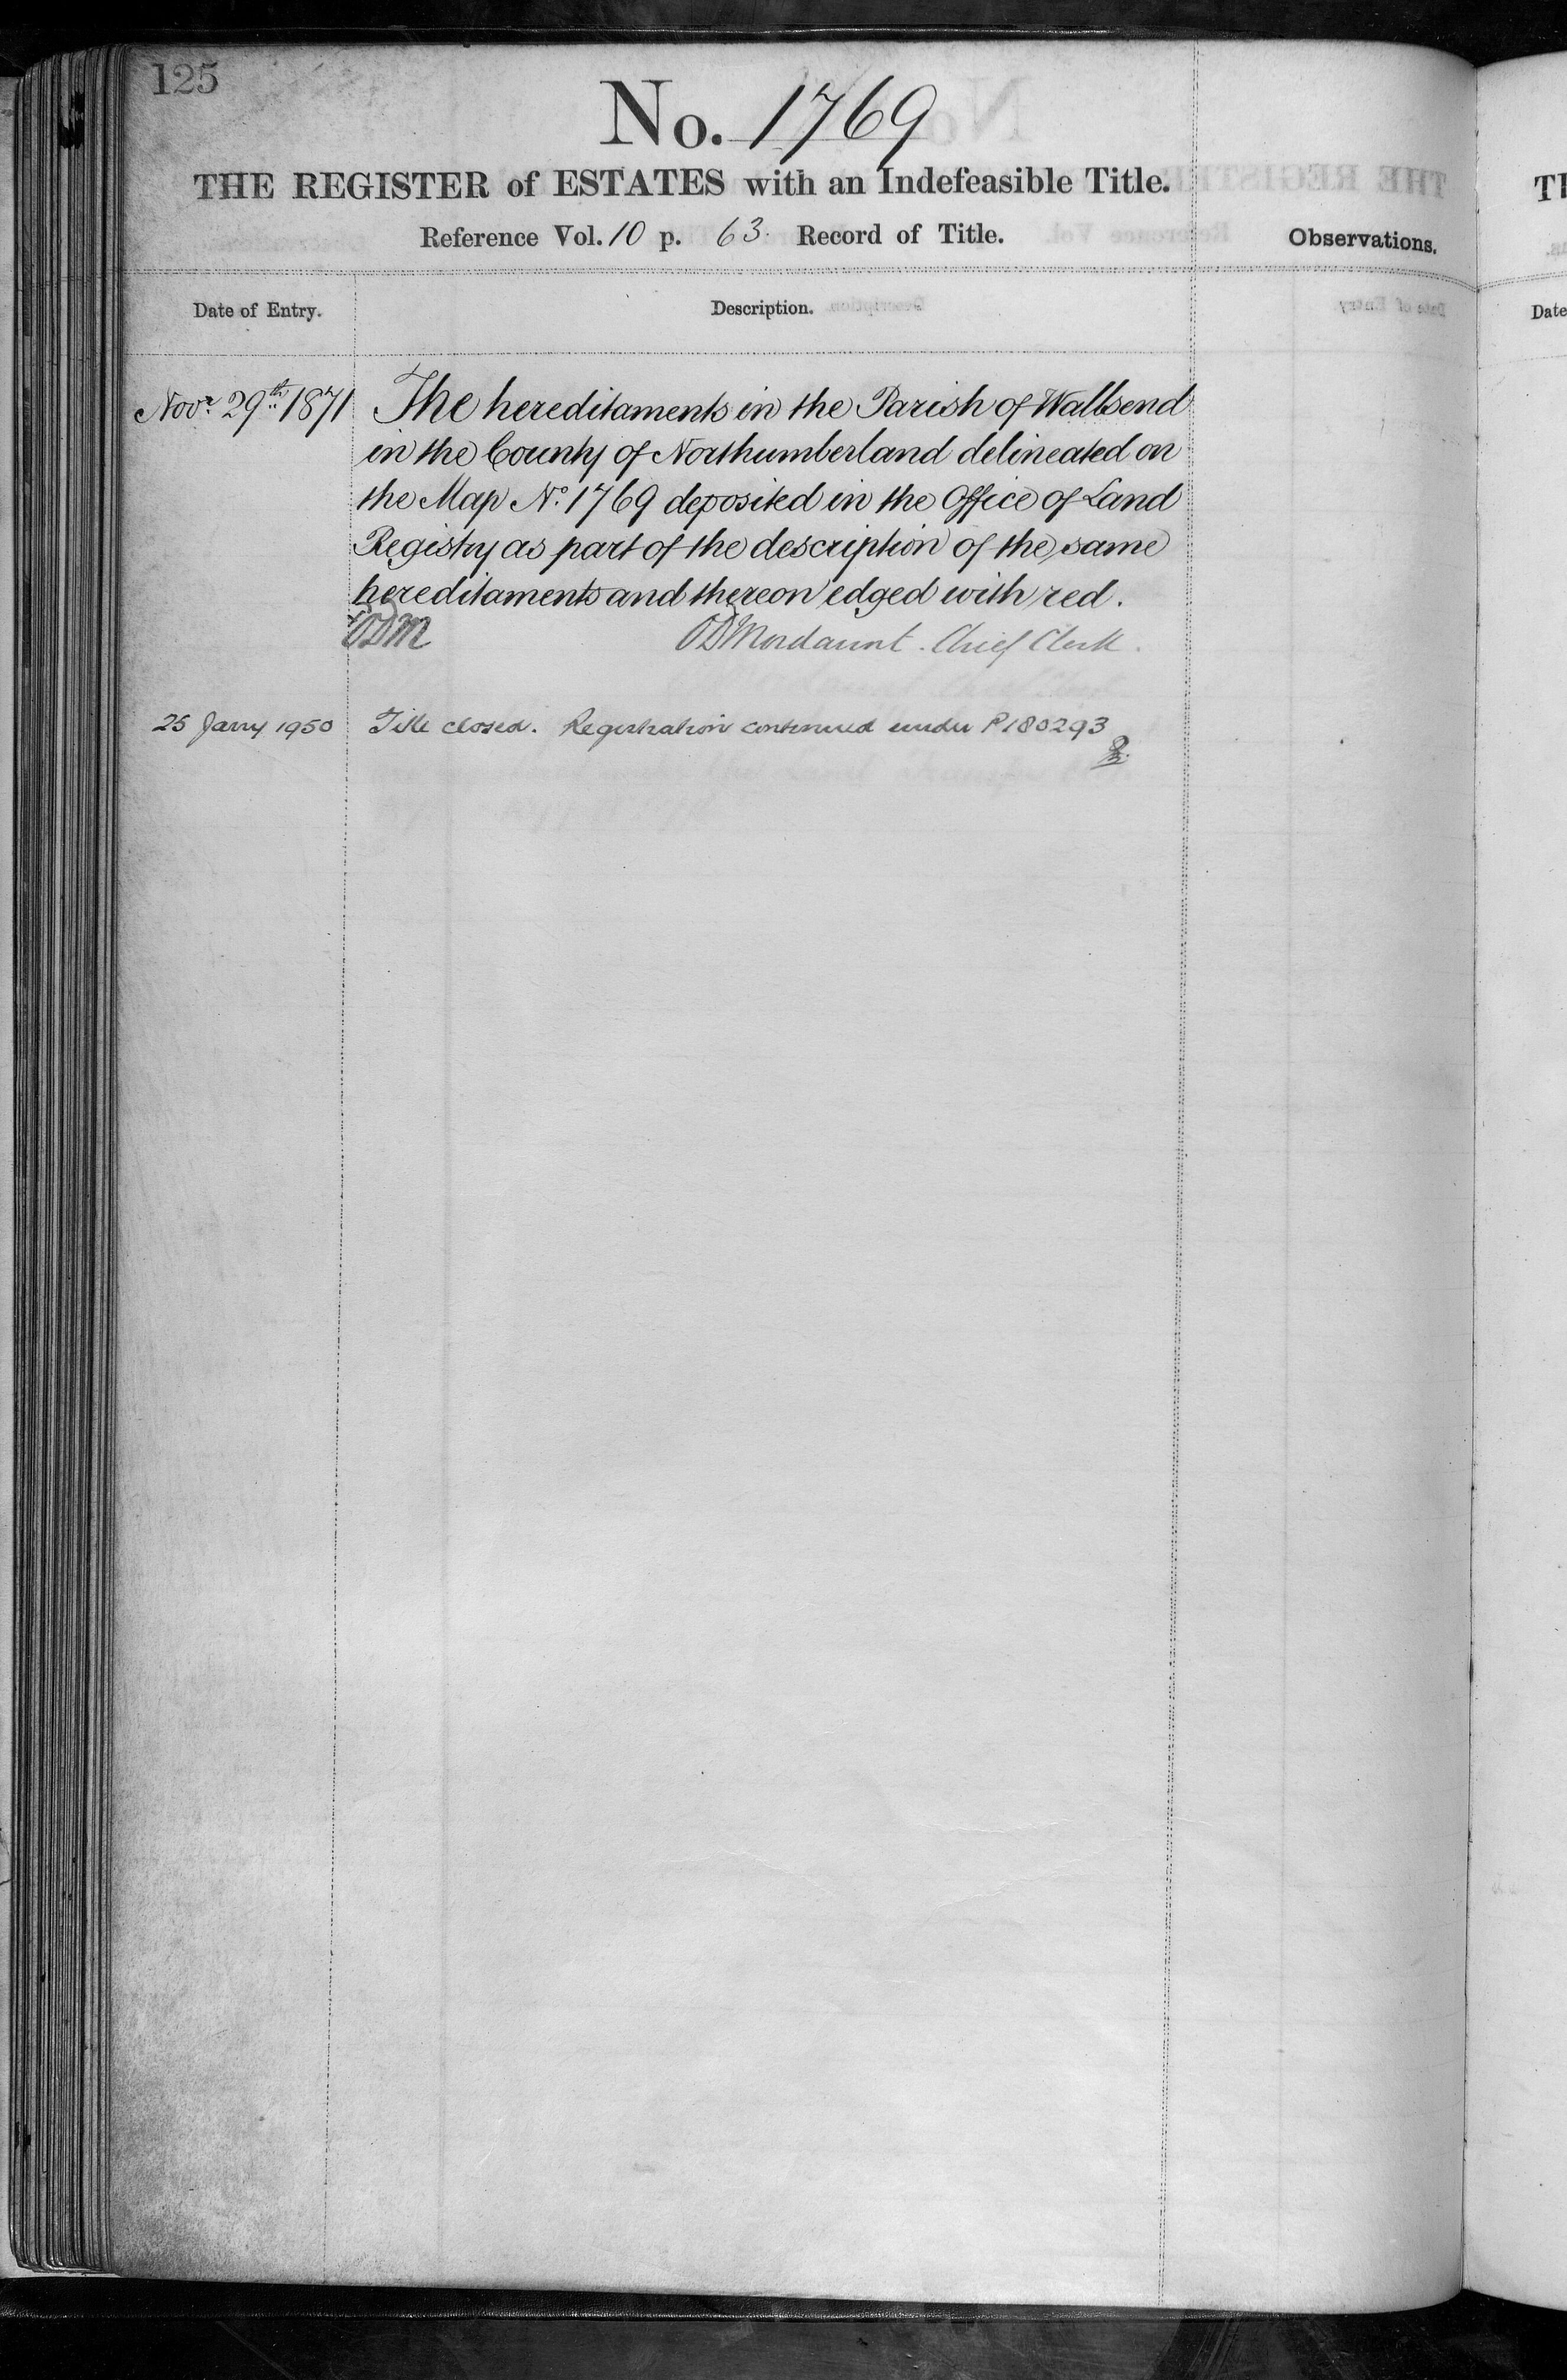 125
No. 1769
THE REGISTER of ESTATES with an Indefeasible Title.
Reference Vol. 10 p. 63. Record of Title.
Observations.
Date of Entry.
Description.
Novr. 29th. 1871
The hereditaments in the Parish of Wallsend
in the County of Northumberland delineated on
the Map No. 1769 deposited in the Office of Land
Registry as part of the description of the same
hereditaments and thereon edged with red.
ODM
ODMordaunt. Chief Clerk.
25 Jany 1950
Title closed. Registration continued under P180293
Date